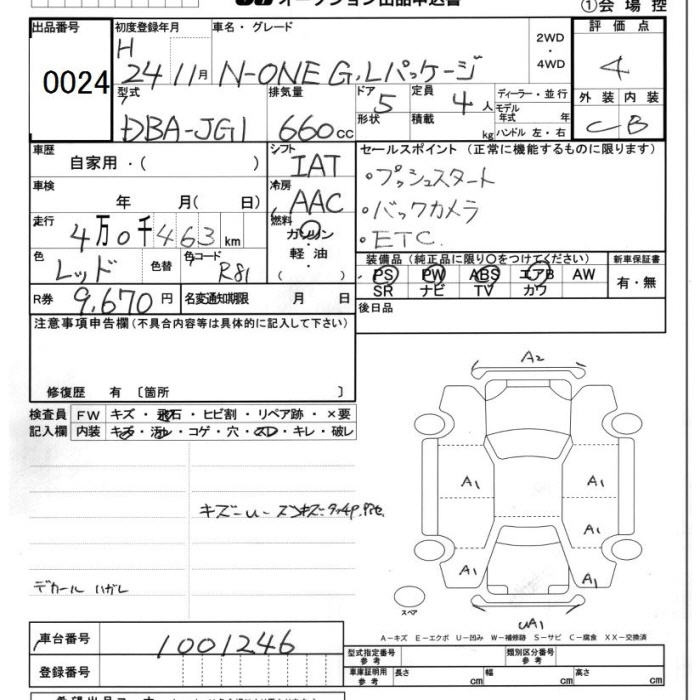 オークション出品申込書
①会場控
出品番号
0024
初度登録年月
H 24 11月
車名・グレード
N-ONE G.Lパッケージ
2WD
・
4WD
評価点
4
型式
DBA-JG1
排気量
660cc
ドア
5
形状
定員
4人
積載
kg
ディーラー・並行
モデル年式 年
ハンドル 左・右
外装 内装
C B
車歴
自家用・( )
シフト
IAT
セールスポイント (正常に機能するものに限ります)
・プッシュスタート
・バックカメラ
・ETC.
車検
年 月( 日)
冷房
AAC
走行
4万0千463km
燃料
ガソリン
・
軽油
・
( )
色
レッド
色替
色コード
R81
装備品 (純正品に限り〇をつけてください)
PS PW ABS エアB AW
SR ナビ TV カワ
新車保証書
有・無
R券
9,670円
名変通知期限 月 日
後日品
注意事項申告欄(不具合内容等は具体的に記入して下さい)
修復歴 有 〔箇所 〕
検査員記入欄
FW キズ・飛石・ヒビ割・リペア跡・×要
内装 キズ・汚れ・コゲ・穴・スレ・キレ・破レ
A2
A1 A1
A1
A1 A1
UA1
スペア
デカール ハガレ
A-キズ E-エクボ U-凹み W-補修跡 S-サビ C-腐食 XX-交換済
車台番号
1001246
登録番号
型式指定番号 参考
類別区分番号 参考
車庫証明用 参考
長さ cm 幅 cm 高さ cm